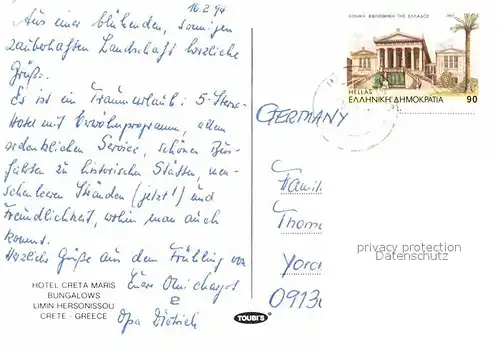 16.2.94
Aus einer blühenden, sonnigen
zauberhaften Landschaft herzliche
Grüße.
Es ist ein Traumurlaub: 5-Sterne-
Hotel mit Verwöhnprogramm, allen
ordentlichen Service, schönen Aus-
fahrten zu historischen Stätten, men-
schenleeren Stränden (jetzt!) und
Freundlichkeit, wohin man auch
kommt.
Herzliche Grüße aus dem Frühling von
Eurer
&
Opa Dietrich
HOTEL CRETA MARIS
BUNGALOWS
LIMIN HERSONISSOU
CRETE - GREECE
TOUBI'S
ΕΘΝΙΚΗ ΒΙΒΛΙΟΘΗΚΗ ΤΗΣ ΕΛΛΑΔΟΣ
HELLAS
ΕΛΛΗΝΙΚΗ ΔΗΜΟΚΡΑΤΙΑ 90
GERMANY
Famil
Thom
0913
privacy protection
Datenschutz